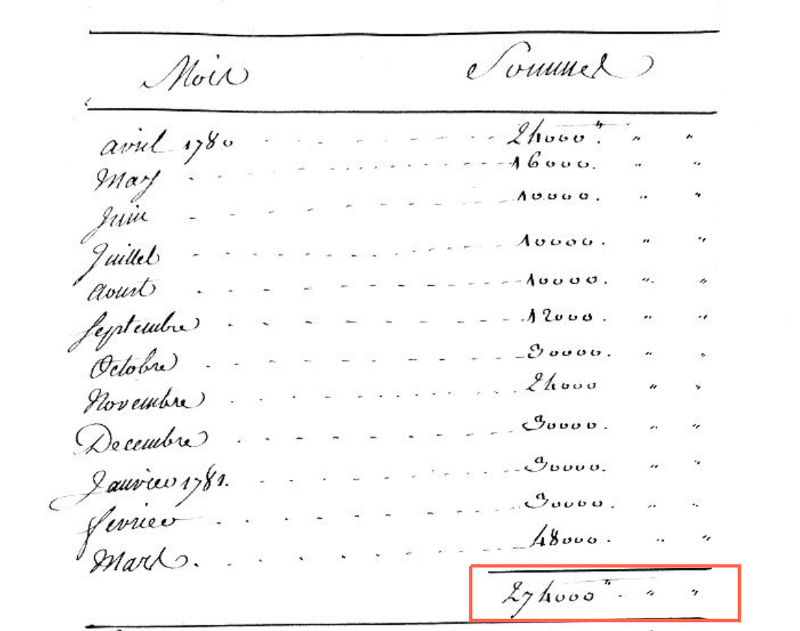 Mois Sommes
avril 1780 - - - - - 24000". " "
May - - - - - 16000. " "
Juin - - - - - 10000. " "
Juillet - - - - - 10000. " "
Aoust - - - - - 10000. " "
Septembre - - - - - 12000. " "
Octobre - - - - - 30000. " "
Novembre - - - - - 24000 " "
Decembre - - - - - 30000. " "
Janvier 1781. - - - - - 30000. " "
fevrier - - - - - 30000. " "
Mars. - - - - - 48000. " "
274000". " "